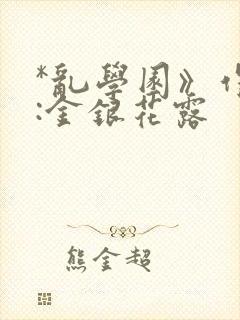 *亂學園》作
:金銀花露
熊金超